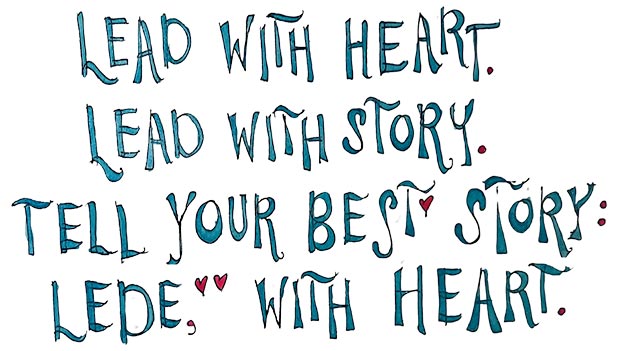 LEAD WITH HEART.
LEAD WITH STORY.
TELL YOUR BEST STORY:
LEDE, WITH HEART.